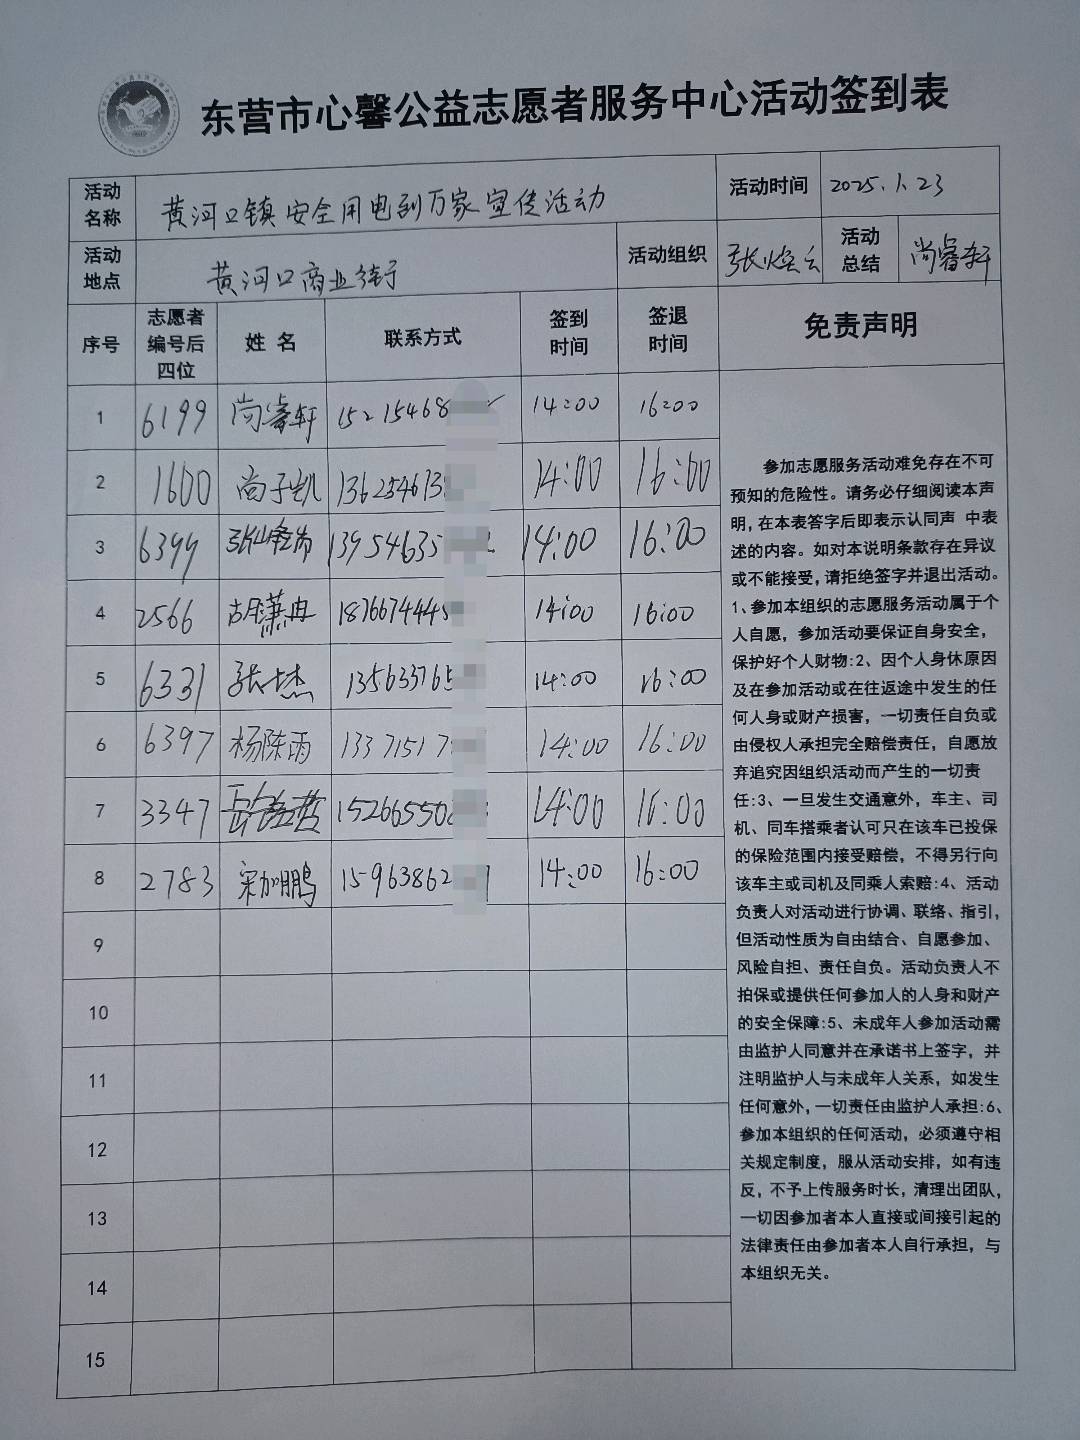 东营市心馨公益志愿者服务中心活动签到表
活动名称 黄河口镇安全用电到万家宣传活动 活动时间 2025.1.23
活动地点 黄河口商业街 活动组织 张焕云 活动总结 尚睿轩
序号 志愿者编号后四位 姓名 联系方式 签到时间 签退时间 免责声明
1 6199 尚睿轩 15215468 14:00 16:00
2 1600 尚子凯 136254613 14:00 16:00
3 6399 13954635 14:00 16:00
4 2566 胡潇冉 1876674445 14:00 16:00
5 6331 张杰 135633765 14:00 16:00
6 6397 杨陈雨 13371517 14:00 16:00
7 3347 152665508 14:00 16:00
8 2783 宋加鹏 15963862 14:00 16:00
9
10
11
12
13
14
15
参加志愿服务活动难免存在不可
预知的危险性。请务必仔细阅读本声
明,在本表答字后即表示认同声 中表
述的内容。如对本说明条款存在异议
或不能接受,请拒绝签字并退出活动。
1、参加本组织的志愿服务活动属于个
人自愿，参加活动要保证自身安全，
保护好个人财物:2、因个人身休原因
及在参加活动或在往返途中发生的任
何人身或财产损害，一切责任自负或
由侵权人承担完全赔偿责任，自愿放
弃追究因组织活动而产生的一切责
任:3、一旦发生交通意外，车主、司
机、同车搭乘者认可只在该车已投保
的保险范围内接受赔偿，不得另行向
该车主或司机及同乘人索赔:4、活动
负责人对活动进行协调、联络、指引，
但活动性质为自由结合、自愿参加、
风险自担、责任自负。活动负责人不
拍保或提供任何参加人的人身和财产
的安全保障:5、未成年人参加活动需
由监护人同意并在承诺书上签字，并
注明监护人与未成年人关系，如发生
任何意外,一切责任由监护人承担:6、
参加本组织的任何活动，必须遵守相
关规定制度，服从活动安排，如有违
反，不予上传服务时长，清理出团队，
一切因参加者本人直接或间接引起的
法律责任由参加者本人自行承担，与
本组织无关。